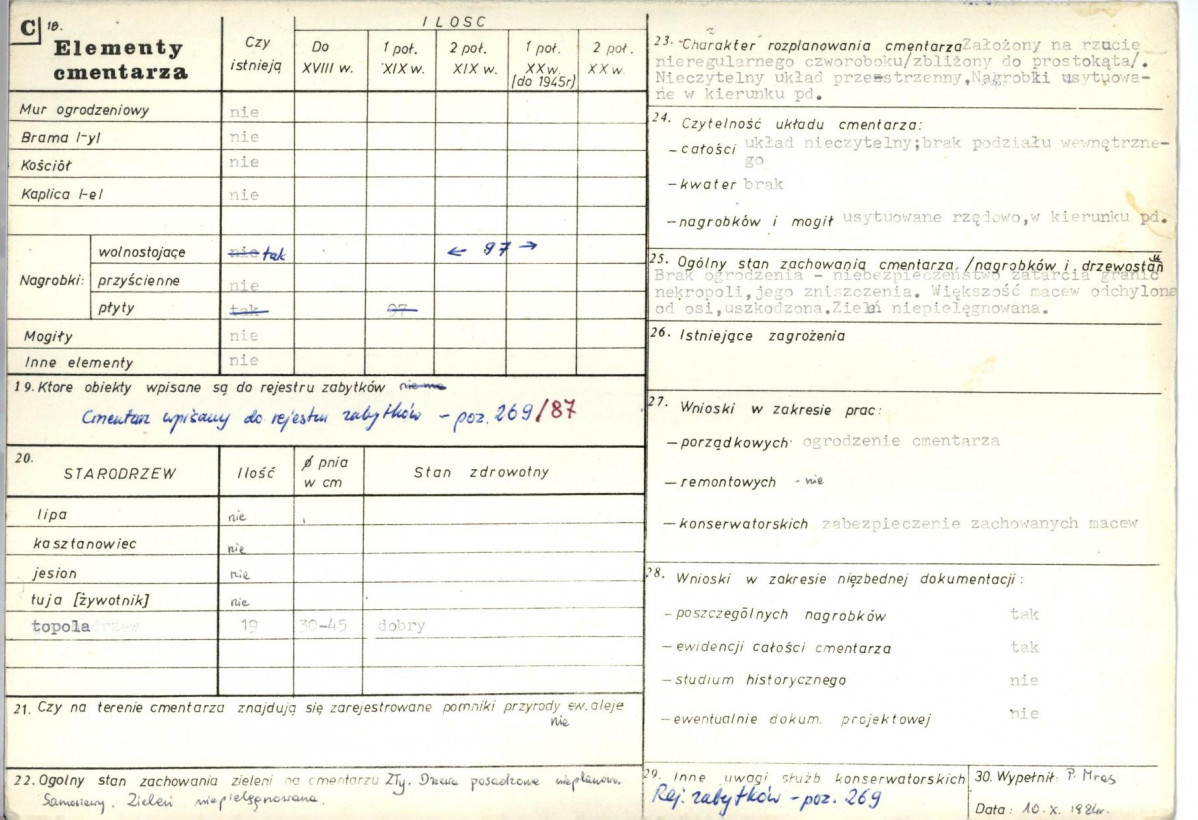 C 18. Elementy cmentarza
Czy istnieją
ILOSC
Do XVIII w.
1 poł. XIX w.
2 poł. XIX w.
1 poł. XX w. (do 1945r)
2 poł. XX w.
Mur ogrodzeniowy nie
Brama l-yl nie
Kościół nie
Kaplica l-el nie
Nagrobki:
wolnostojące nie tak ← 97 →
przyścienne nie
płyty tak 97
Mogiły nie
Inne elementy nie
19. Ktore obiekty wpisane są do rejestru zabytków nie ma
Cmentarz wpisany do rejestru zabytków - poz. 269/87
20. STARODRZEW Ilość ø pnia w cm Stan zdrowotny
lipa nie
kasztanowiec nie
jesion nie
tuja [żywotnik] nie
topola 19 30-45 dobry
21. Czy na terenie cmentarza znajdują się zarejestrowane pomniki przyrody ew. aleje
nie
22. Ogolny stan zachowania zieleni na cmentarzu Zły. Drzewa posadzone nieplanowo.
Samosiewy. Zieleń niepielęgnowana.
23. Charakter rozplanowania cmentarza Założony na rzucie
nieregularnego czworoboku/zbliżony do prostokąta/.
Nieczytelny układ przestrzenny, Nagrobki usytuowa-
ne w kierunku pd.
24. Czytelność układu cmentarza:
- całości układ nieczytelny;brak podziału wewnętrzne-
go
- kwater brak
- nagrobków i mogił usytuowane rzędowo,w kierunku pd.
25. Ogólny stan zachowania cmentarza, /nagrobków i drzewostanu
Brak ogrodzenia - niebezpieczeństwo zatarcia granic
nekropoli,jego zniszczenia. Większość macew odchylona
od osi,uszkodzona.Zieleń niepielęgnowana.
26. Istniejące zagrożenia
27. Wnioski w zakresie prac:
- porządkowych ogrodzenie cmentarza
- remontowych - nie
- konserwatorskich zabezpieczenie zachowanych macew
28. Wnioski w zakresie nięzbednej dokumentacji:
- poszczególnych nagrobków tak
- ewidencji całości cmentarza tak
- studium historycznego nie
- ewentualnie dokum. projektowej nie
29. Inne uwagi służb konserwatorskich
Rej. zabytków - poz. 269
30. Wypełnił: P. Mras
Data: 10. X. 1984r.